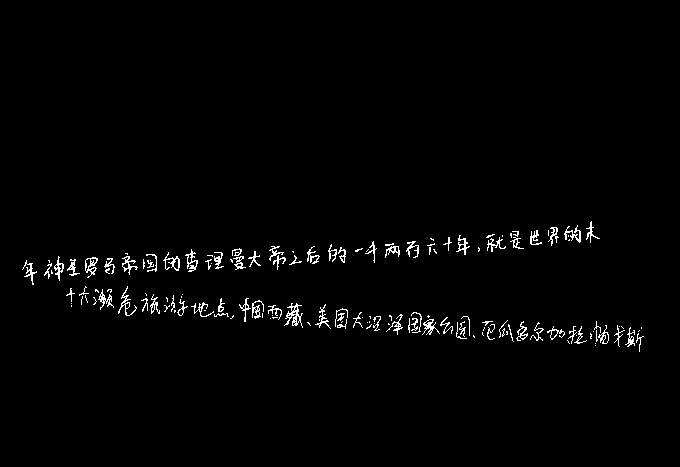 年神圣罗马帝国的查理曼大帝之后的一千两百六十年，就是世界的末
十大濒危旅游地点，中国西藏、美国大沼泽国家公园、厄瓜多尔加拉帕戈斯